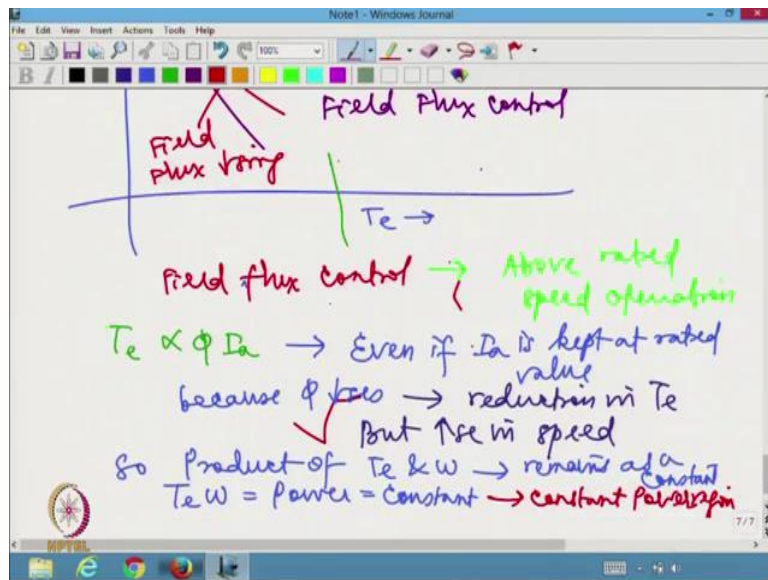 Note1 - Windows Journal
File Edit View Insert Actions Tools Help
100%
B I
Field Flux control
Field
Flux ↓sing
Te →
Field flux control → Above rated
speed operation
Te ∝ φ Ia → Even if Ia is kept at rated
value
because φ ↓ses → reduction in Te
But ↑se in speed
So Product of Te & ω → remains as a
constant
Te ω = Power = constant → constant power region
7/7
NPTEL